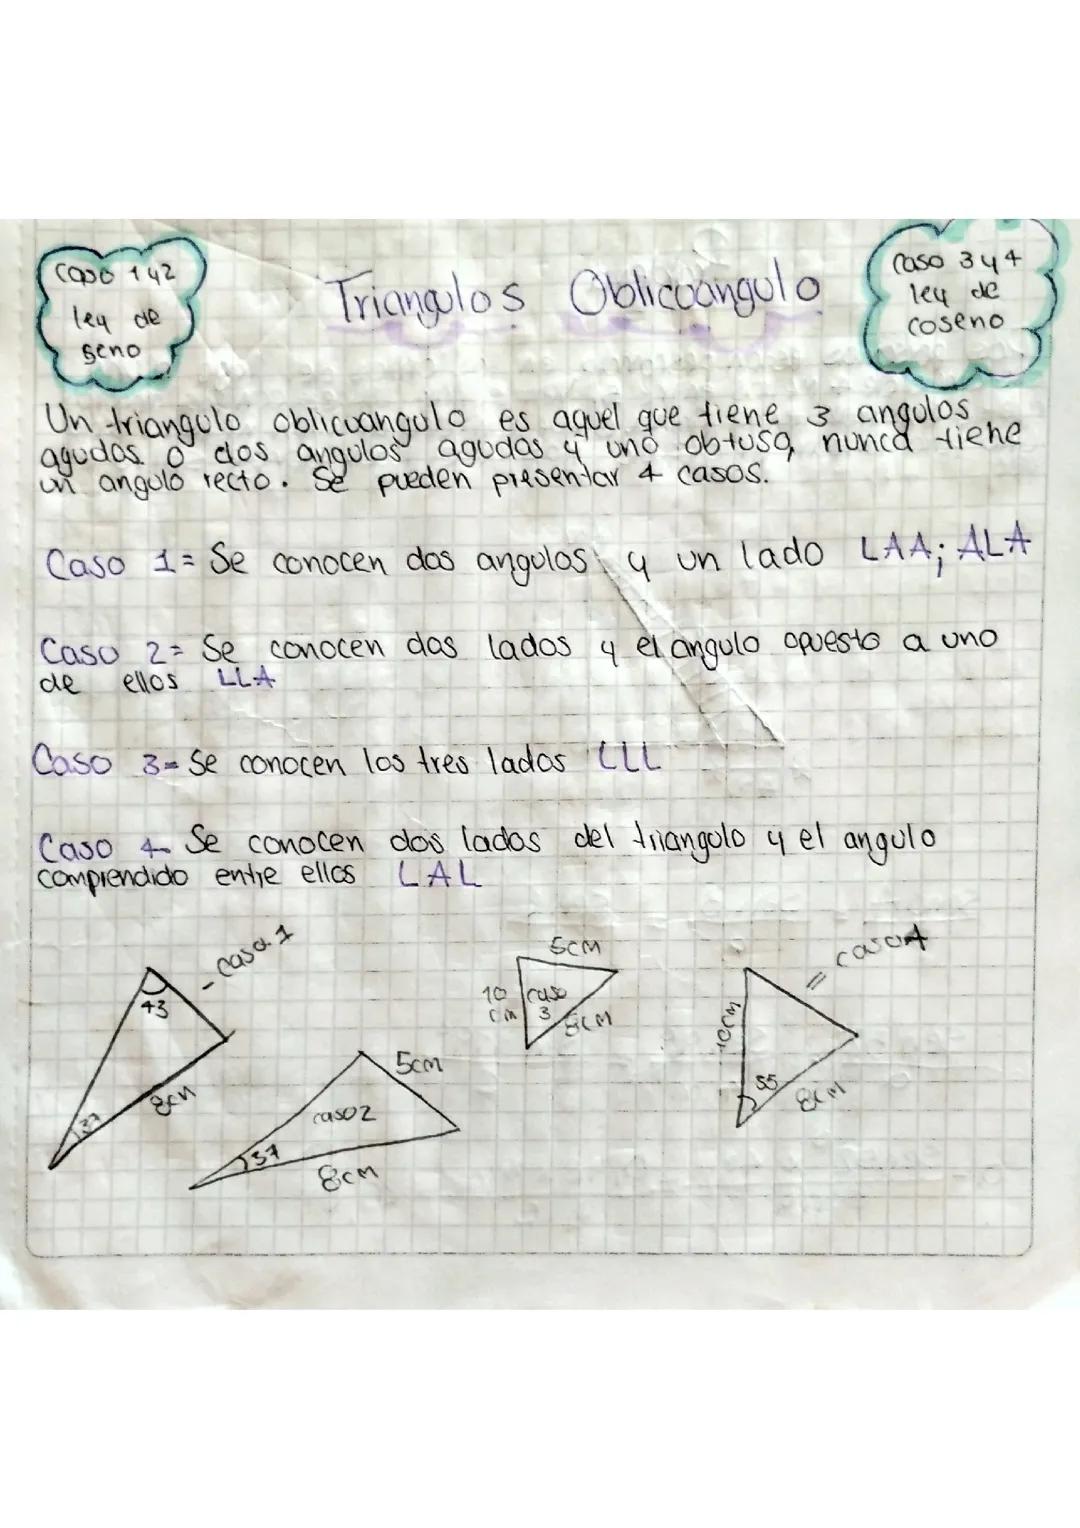 caso 1 y 2
ley de
seno
Triangulos Oblicuangulo
caso 3 y 4
ley de
coseno
Un triangulo oblicuangulo es aquel que tiene 3 angulos
agudos o dos angulos agudos y uno obtuso, nunca tiene
un angulo recto. Se pueden presentar 4 casos.
Caso 1= Se conocen dos angulos y un lado LAA; ALA
Caso 2= Se conocen dos lados y el angulo opuesto a uno
de ellos LLA
Caso 3= Se conocen los tres lados LLL
Caso 4- Se conocen dos lados del triangulo y el angulo
comprendido entre ellos LAL
- caso 1
43
37
8cm
5cm
caso 2
37
8cm
5cm
10
cm
caso
3
8cm
= caso 4
10cm
55
8cm